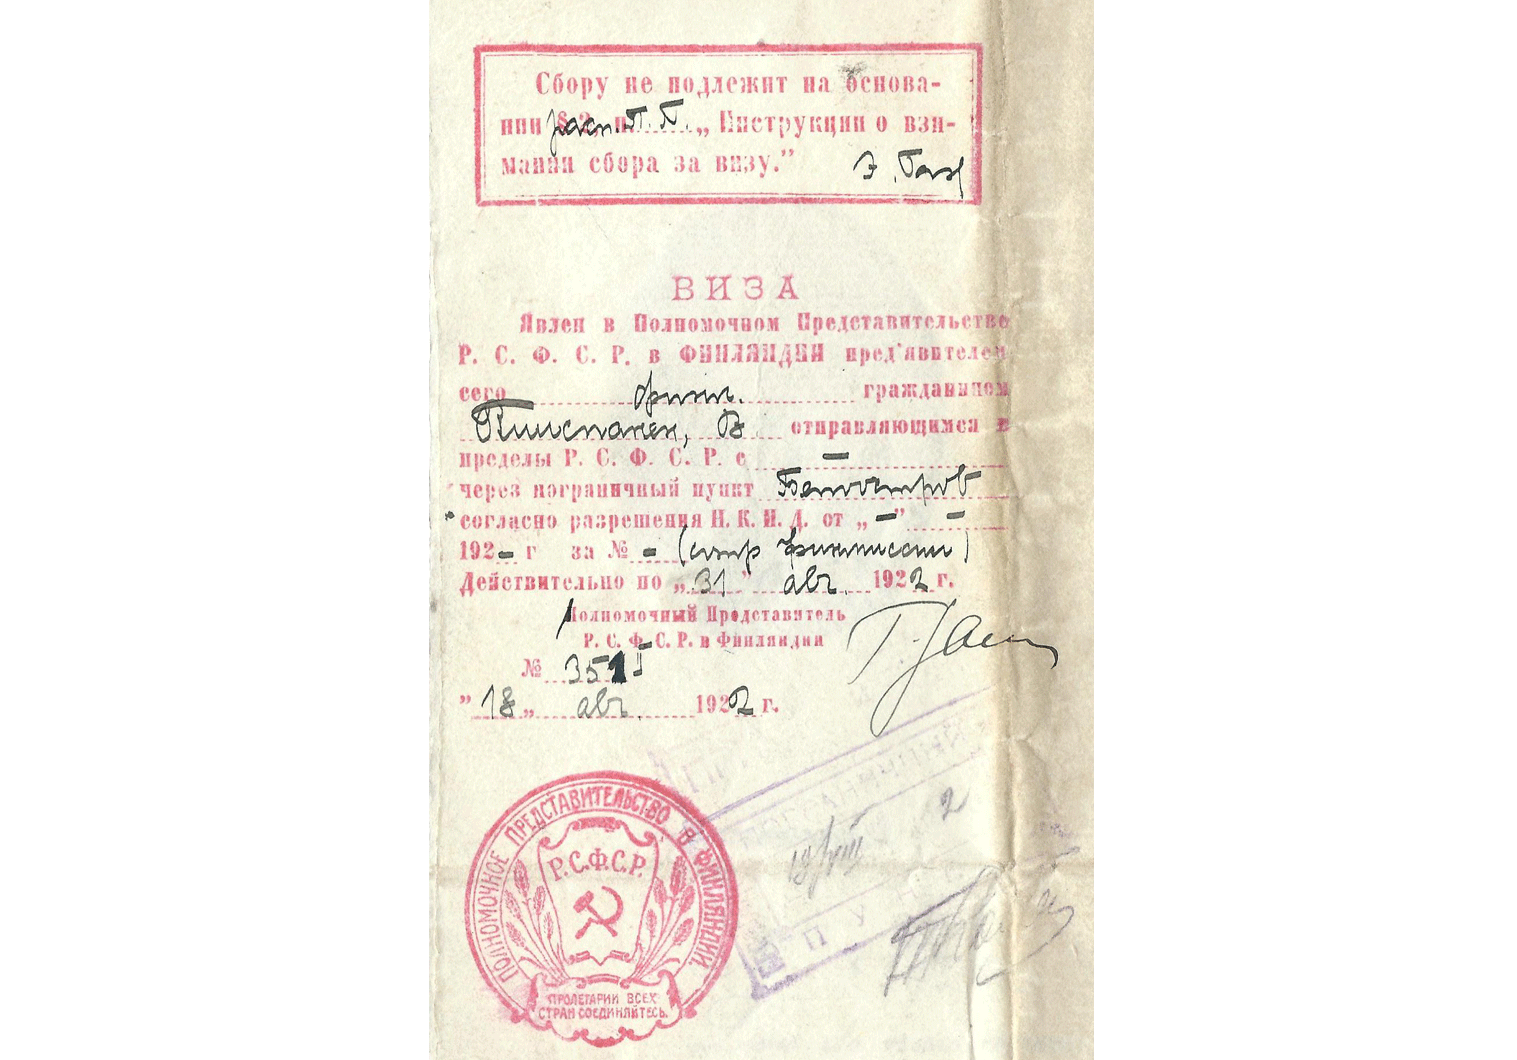 Сбору не подлежит на основа-
нии § 2, п. расп. П. П. „Инструкции о взи-
мании сбора за визу.”
ВИЗА
Явлен в Полномочном Представительстве
Р. С. Ф. С. Р. в ФИНЛЯНДИИ пред'явителем
сего финл. гражданином
отправляющимся в
пределы Р. С. Ф. С. Р. с –
через пограничный пункт Белоостров
согласно разрешения Н. К. И. Д. от „ – ” –
192 – г за № – (сотр финмиссии)
Действительно по „31” авг. 1922 г.
Полномочный Представитель
Р. С. Ф. С. Р. в Финляндии
№ 3515
„18„ авг. 1922 г.
ПОЛНОМОЧНОЕ ПРЕДСТАВИТЕЛЬСТВО В ФИНЛЯНДИИ
Р.С.Ф.С.Р.
ПРОЛЕТАРИИ ВСЕХ
СТРАН СОЕДИНЯЙТЕСЬ.